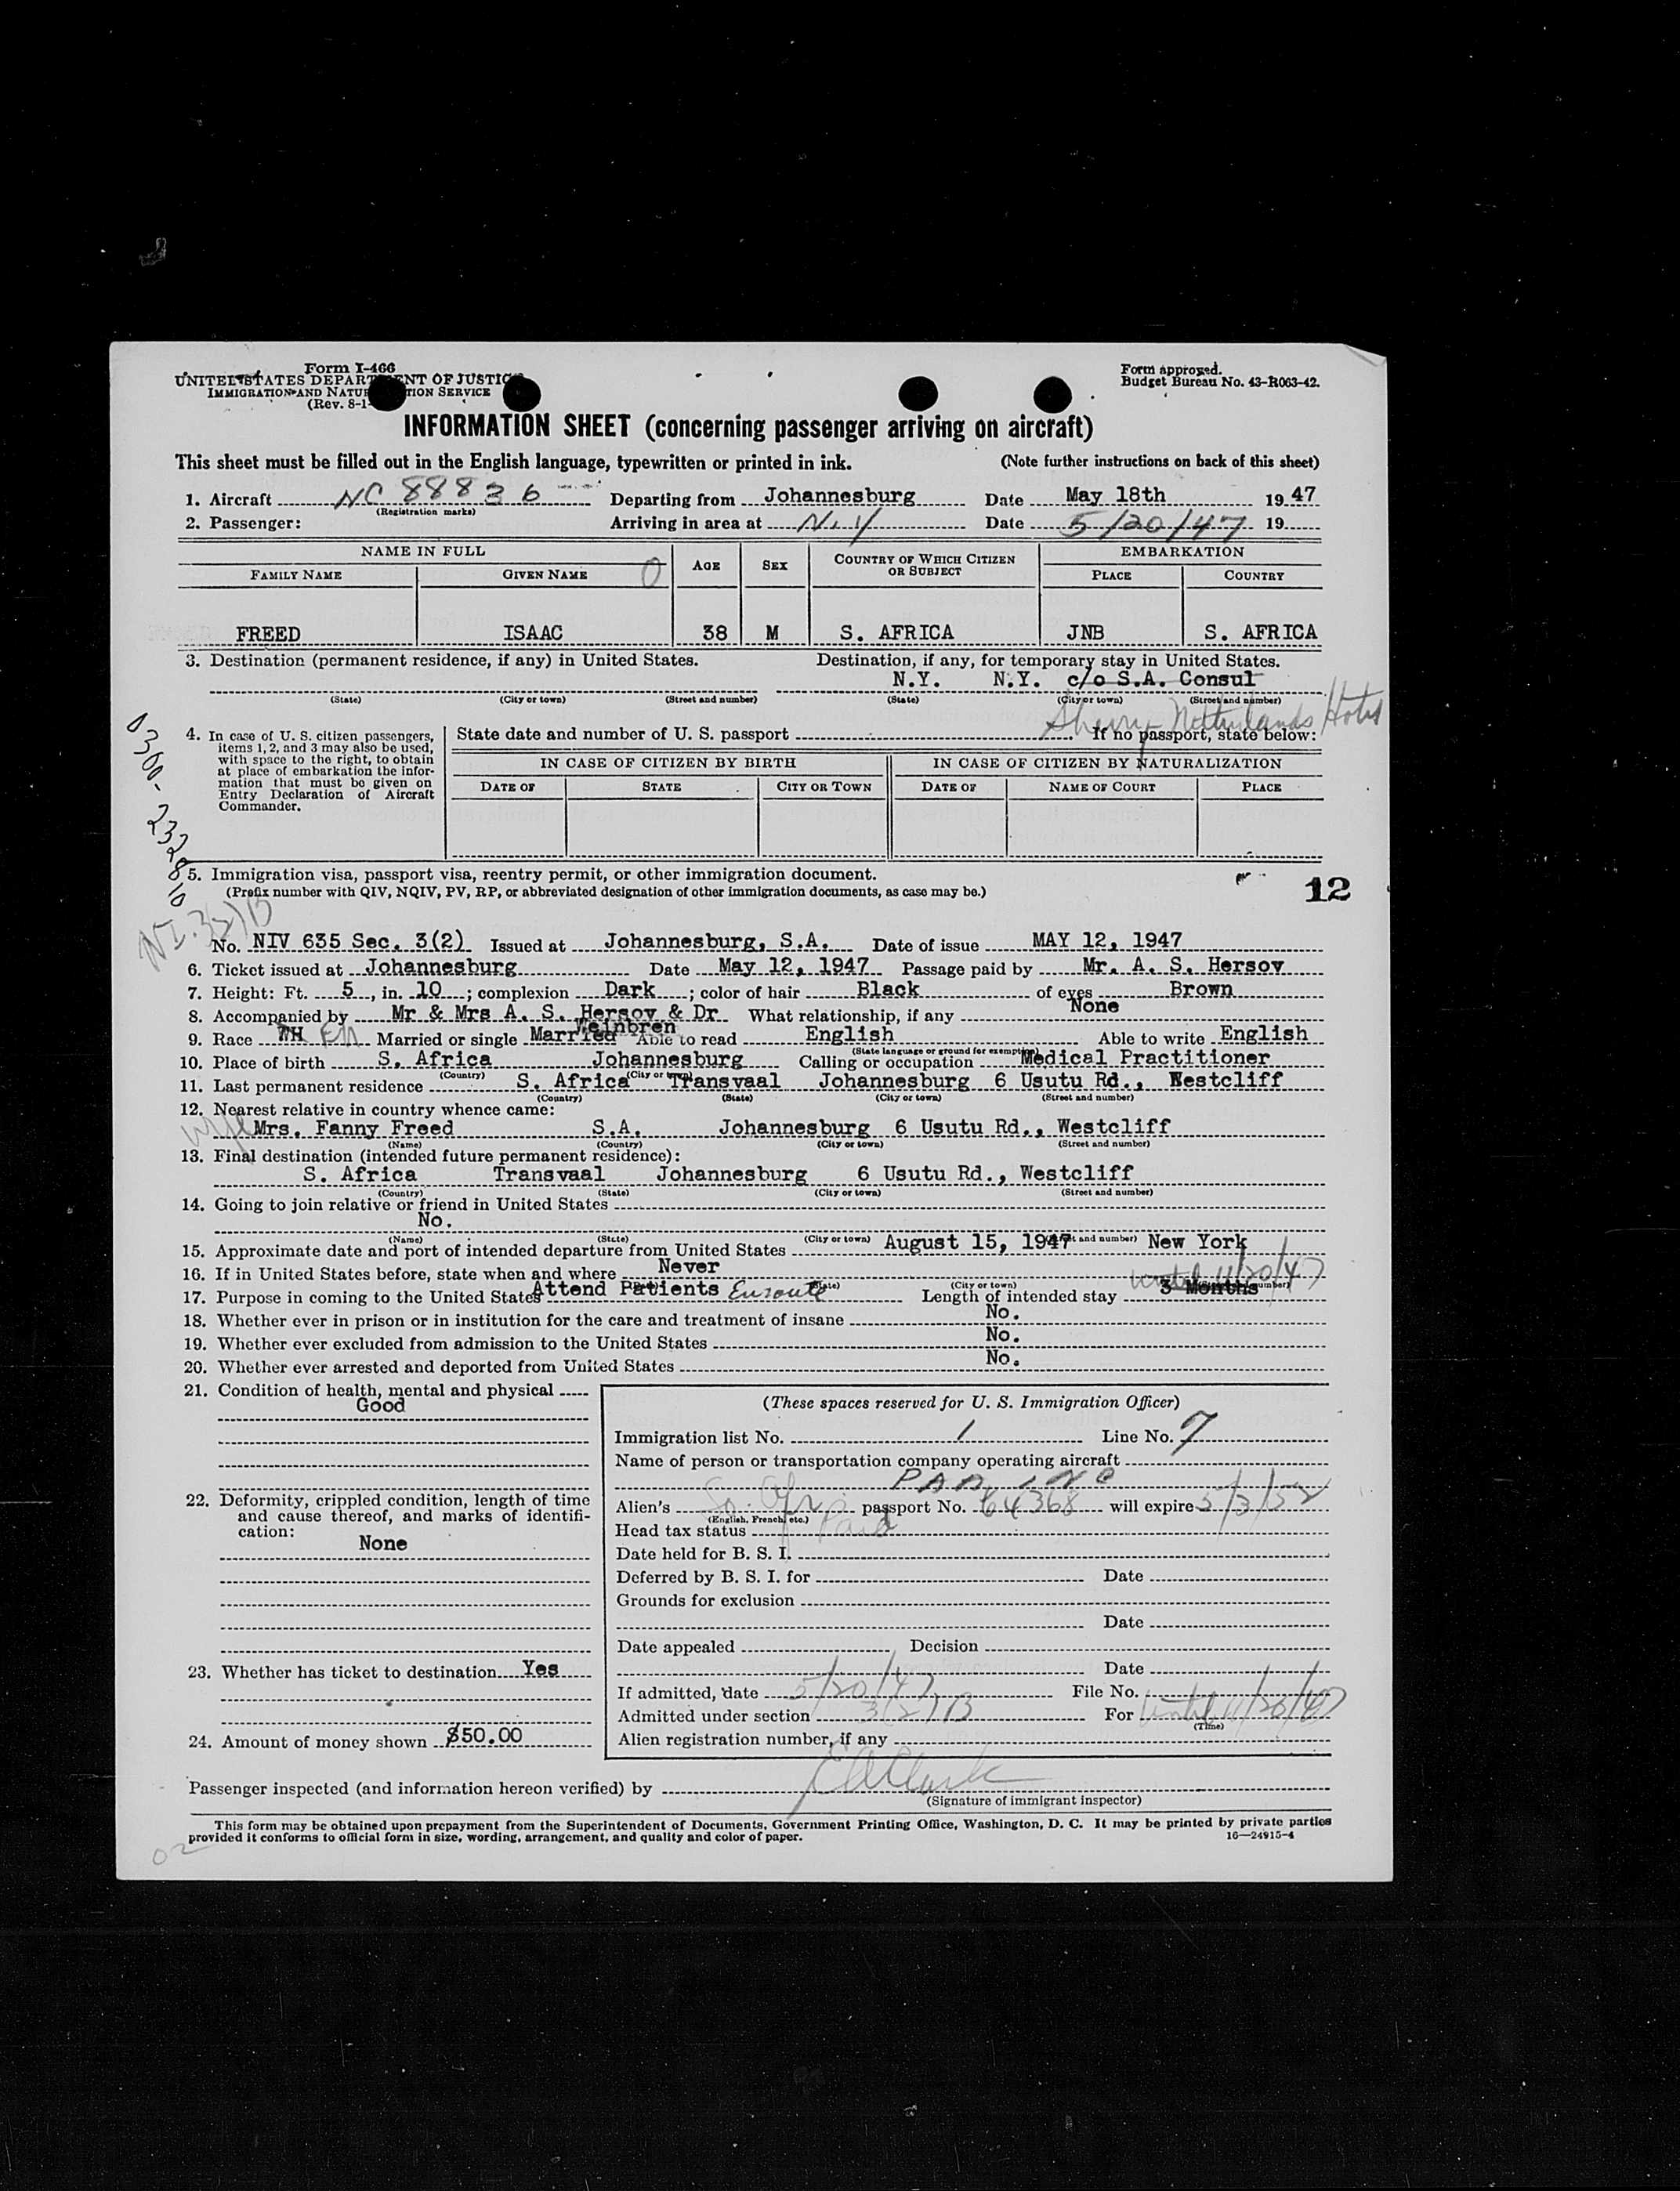 Form I-466
UNITED STATES DEPARTMENT OF JUSTICE
IMMIGRATION AND NATURALIZATION SERVICE
(Rev. 8-1-
Form approved.
Budget Bureau No. 43-R063-42.
INFORMATION SHEET (concerning passenger arriving on aircraft)
This sheet must be filled out in the English language, typewritten or printed in ink. (Note further instructions on back of this sheet)
1. Aircraft NC 88836 Departing from Johannesburg Date May 18th 1947
(Registration marks)
2. Passenger: Arriving in area at N.Y Date 5/20/47 19
NAME IN FULL AGE SEX COUNTRY OF WHICH CITIZEN OR SUBJECT EMBARKATION
FAMILY NAME GIVEN NAME 0 PLACE COUNTRY
FREED ISAAC 38 M S. AFRICA JNB S. AFRICA
3. Destination (permanent residence, if any) in United States. Destination, if any, for temporary stay in United States.
N.Y. N.Y. c/o S.A. Consul
(State) (City or town) (Street and number) (State) (City or town) (Street and number)
Sherry Netherlands Hotel
4. In case of U. S. citizen passengers, items 1, 2, and 3 may also be used, with space to the right, to obtain at place of embarkation the information that must be given on Entry Declaration of Aircraft Commander.
State date and number of U. S. passport If no passport, state below:
IN CASE OF CITIZEN BY BIRTH IN CASE OF CITIZEN BY NATURALIZATION
DATE OF STATE CITY OR TOWN DATE OF NAME OF COURT PLACE
0300-232810
5. Immigration visa, passport visa, reentry permit, or other immigration document.
(Prefix number with QIV, NQIV, PV, RP, or abbreviated designation of other immigration documents, as case may be.)
12
NI. 3(2)B
No. NIV 635 Sec. 3(2) Issued at Johannesburg, S.A. Date of issue MAY 12, 1947
6. Ticket issued at Johannesburg Date May 12, 1947 Passage paid by Mr. A. S. Hersov
7. Height: Ft. 5, in. 10; complexion Dark; color of hair Black of eyes Brown
8. Accompanied by Mr & Mrs A. S. Hersov & Dr Weinbren What relationship, if any None
9. Race WH En Married or single Married Able to read English Able to write English
(State language or ground for exemption)
10. Place of birth S. Africa Johannesburg Calling or occupation Medical Practitioner
(Country) (City or town)
11. Last permanent residence S. Africa Transvaal Johannesburg 6 Usutu Rd., Westcliff
(Country) (State) (City or town) (Street and number)
12. Nearest relative in country whence came:
wife Mrs. Fanny Freed S.A. Johannesburg 6 Usutu Rd., Westcliff
(Name) (Country) (City or town) (Street and number)
13. Final destination (intended future permanent residence):
S. Africa Transvaal Johannesburg 6 Usutu Rd., Westcliff
(Country) (State) (City or town) (Street and number)
14. Going to join relative or friend in United States
No.
(Name) (State) (City or town) (Street and number)
15. Approximate date and port of intended departure from United States August 15, 1947 New York
16. If in United States before, state when and where Never
(Date) (State) (City or town) (Street and number)
until 11/20/47
17. Purpose in coming to the United States Attend Patients Enroute Length of intended stay 3 Months
18. Whether ever in prison or in institution for the care and treatment of insane No.
19. Whether ever excluded from admission to the United States No.
20. Whether ever arrested and deported from United States No.
21. Condition of health, mental and physical
Good
22. Deformity, crippled condition, length of time and cause thereof, and marks of identification:
None
23. Whether has ticket to destination Yes
24. Amount of money shown $50.00
(These spaces reserved for U. S. Immigration Officer)
Immigration list No. 1 Line No. 7
Name of person or transportation company operating aircraft
PAA, INC
Alien's So. Afr. passport No. 64368 will expire 5/3/52
(English, French, etc.)
Head tax status Paid
Date held for B. S. I.
Deferred by B. S. I. for Date
Grounds for exclusion
Date
Date appealed Decision
Date
If admitted, date 5/20/47 File No.
Admitted under section 3(2)B For until 11/20/47
(Time)
Alien registration number, if any
Passenger inspected (and information hereon verified) by E A Clark
(Signature of immigrant inspector)
This form may be obtained upon prepayment from the Superintendent of Documents, Government Printing Office, Washington, D. C. It may be printed by private parties
provided it conforms to official form in size, wording, arrangement, and quality and color of paper. 16—24915-4
02